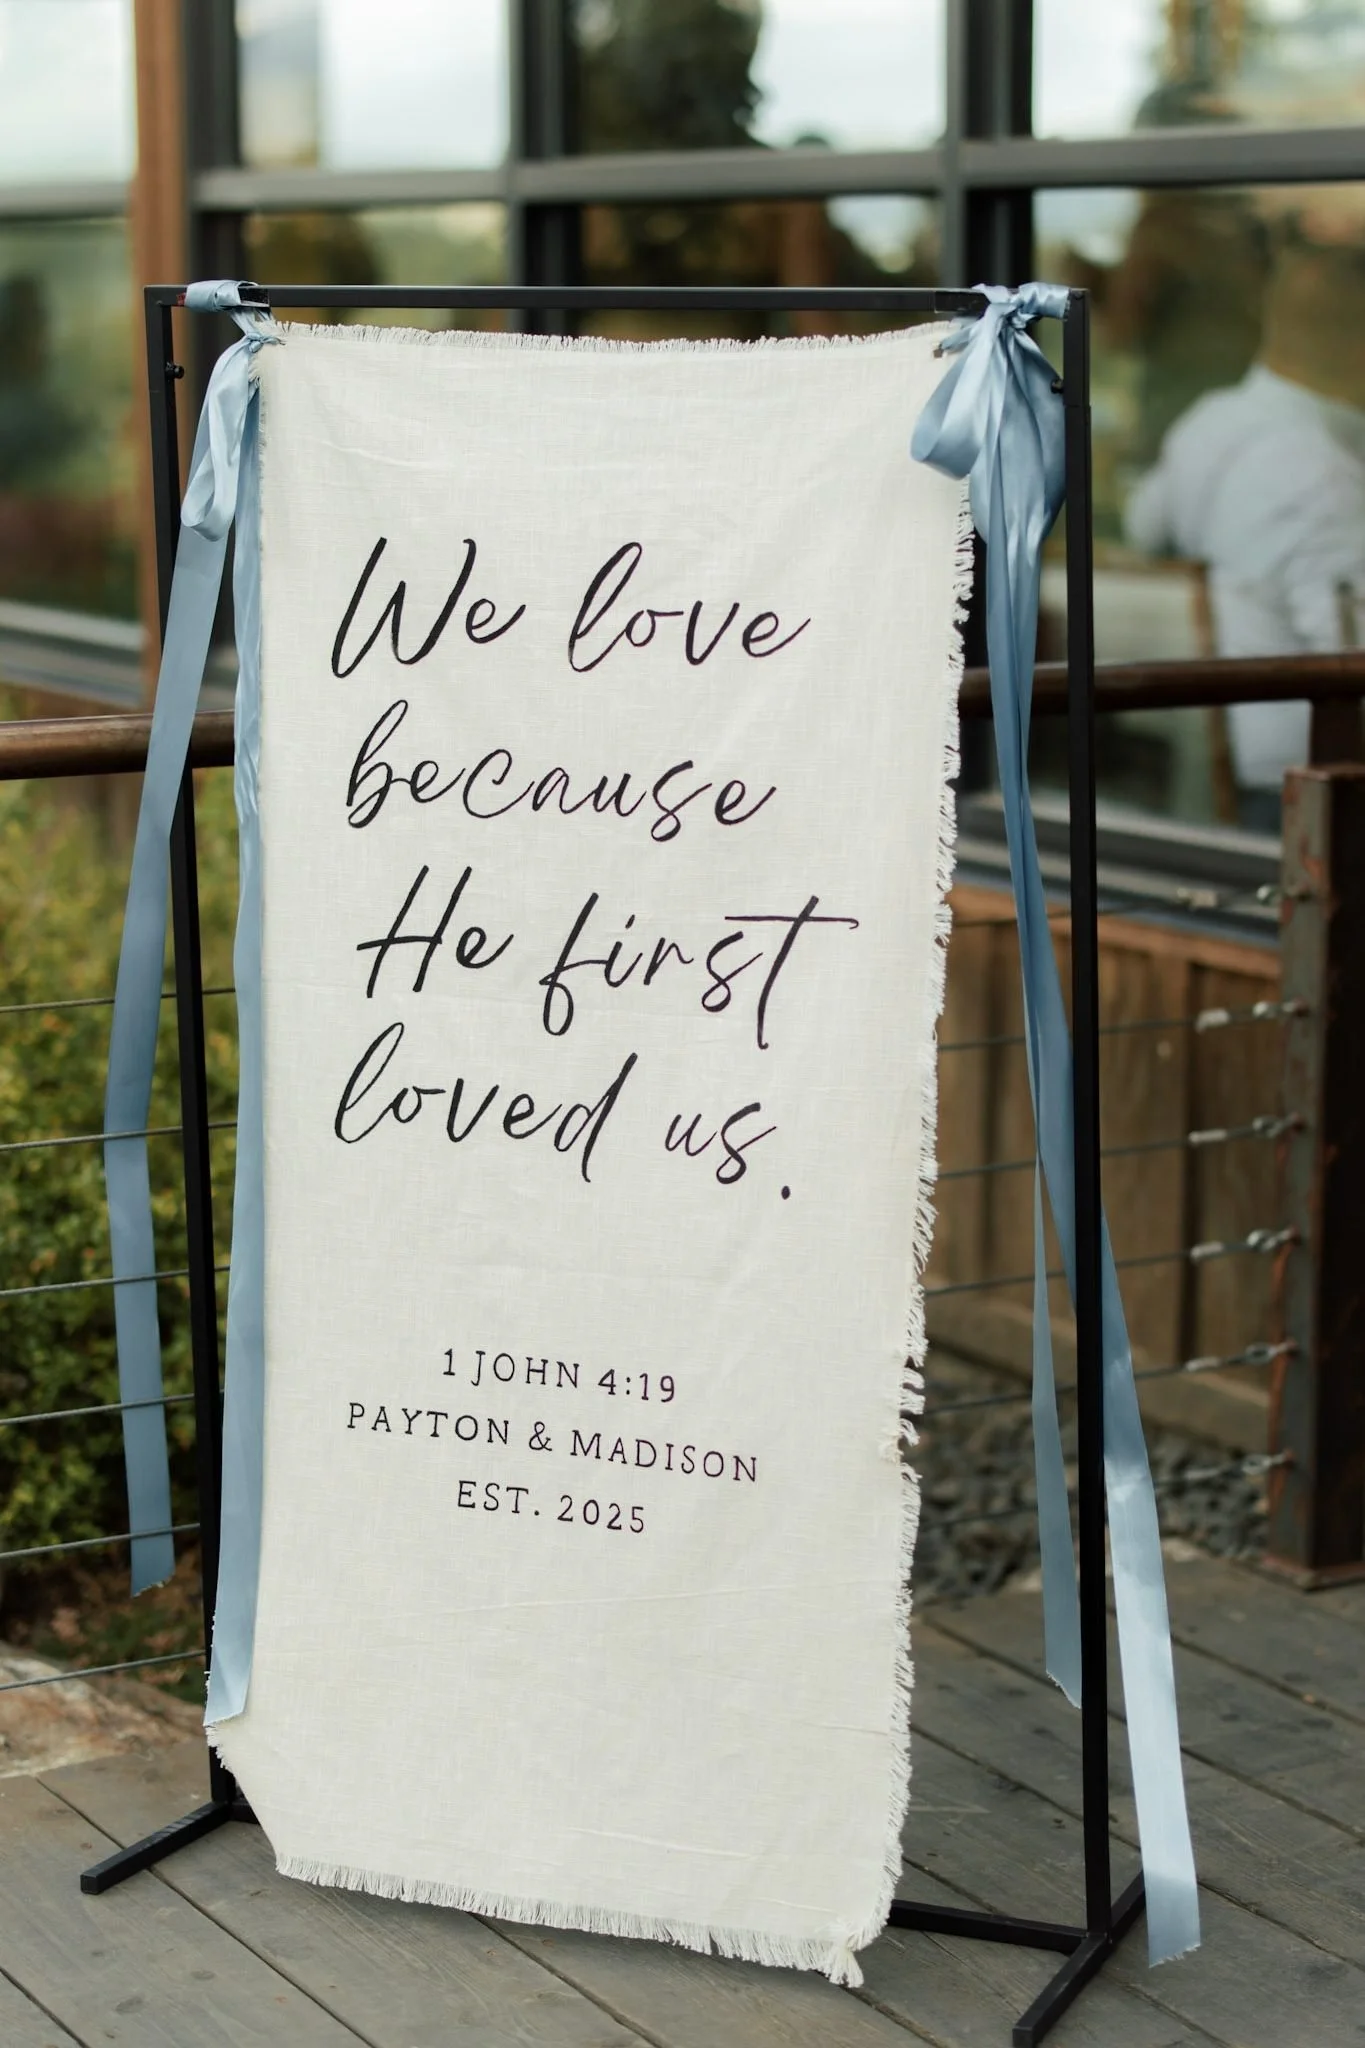 We love
because
He first
loved us.
1 JOHN 4:19
PAYTON & MADISON
EST. 2025